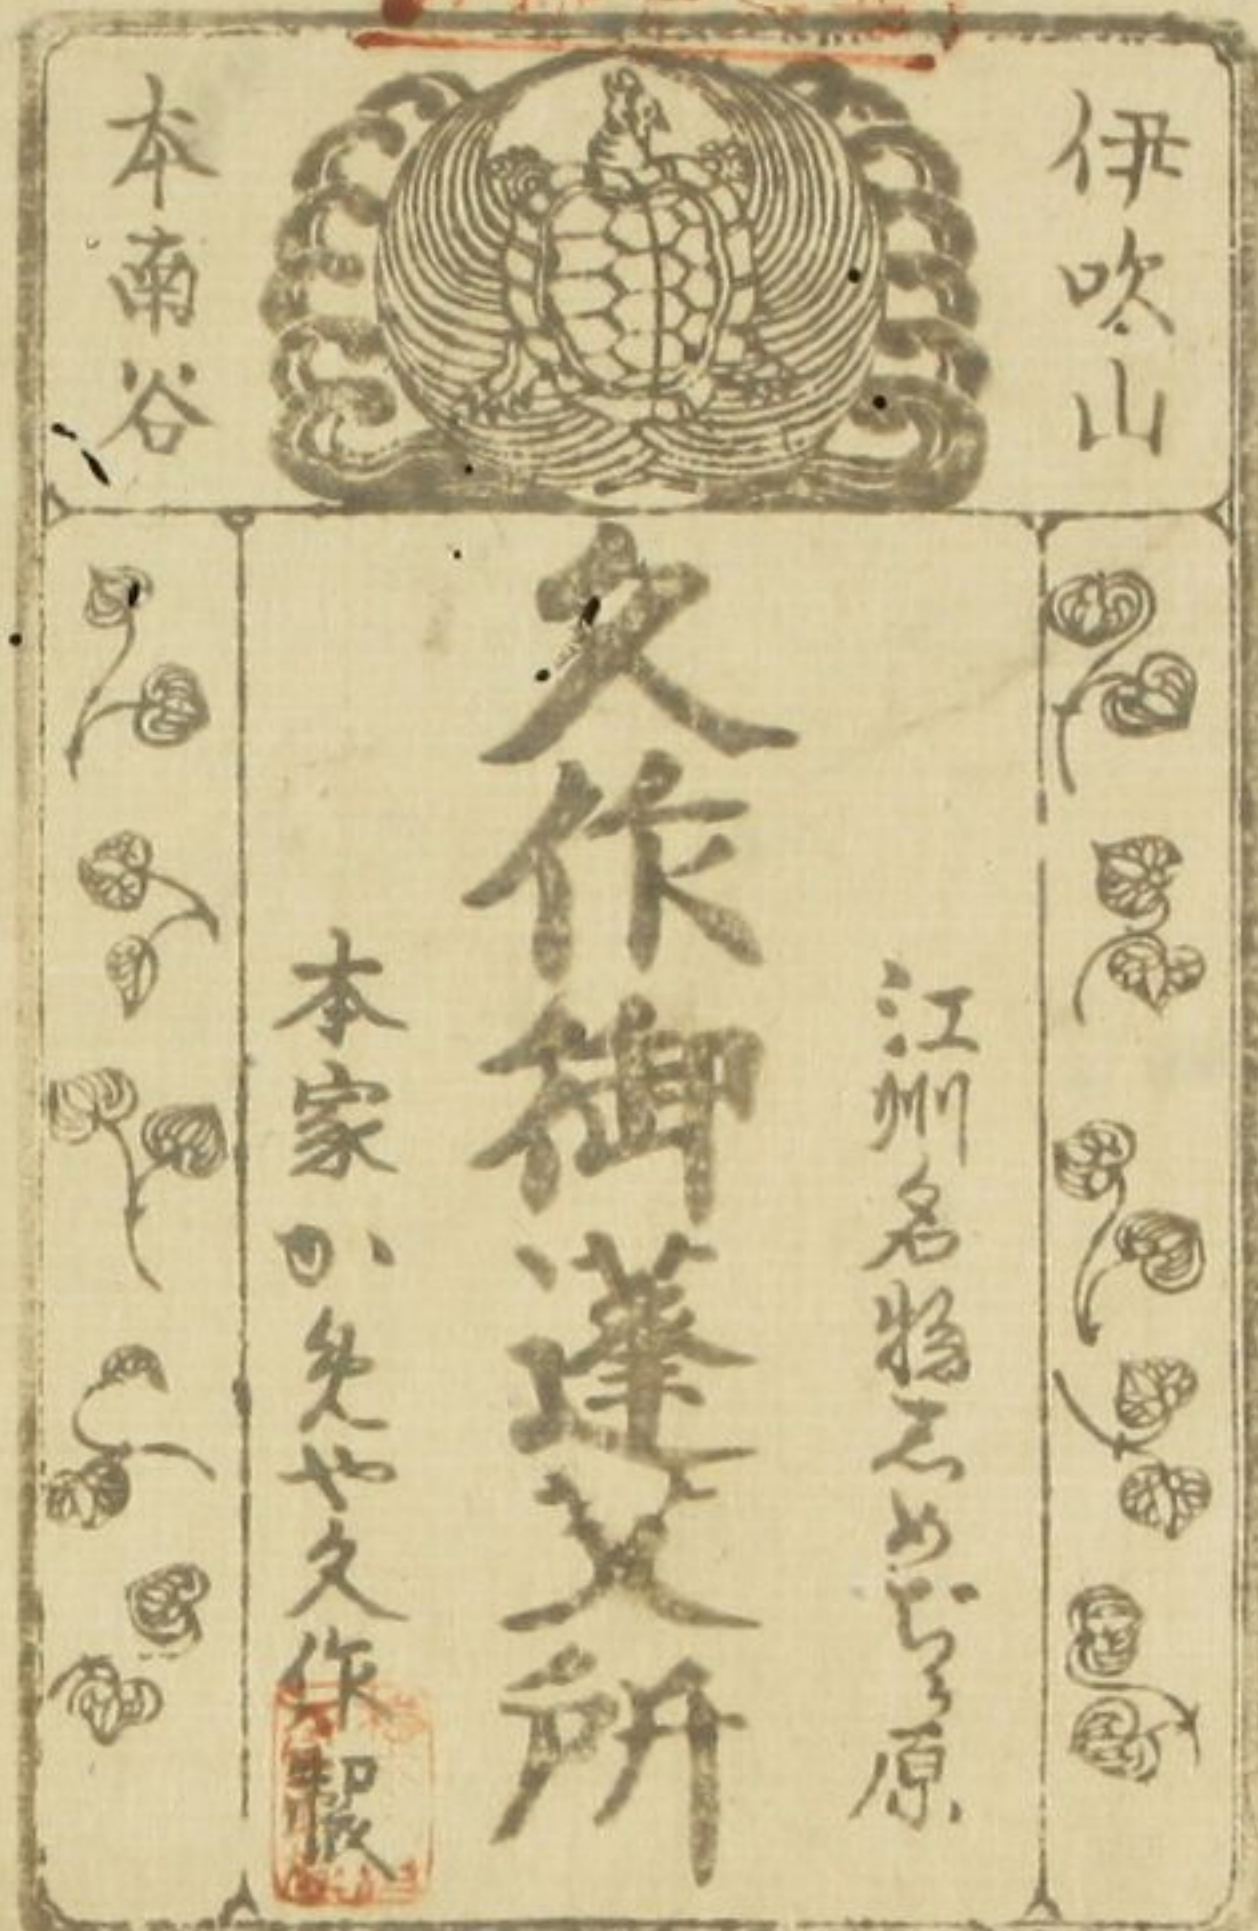 伊吹山
本南谷
江州名物志めぢが原
久作御蓬艾所
本家かめや久作製